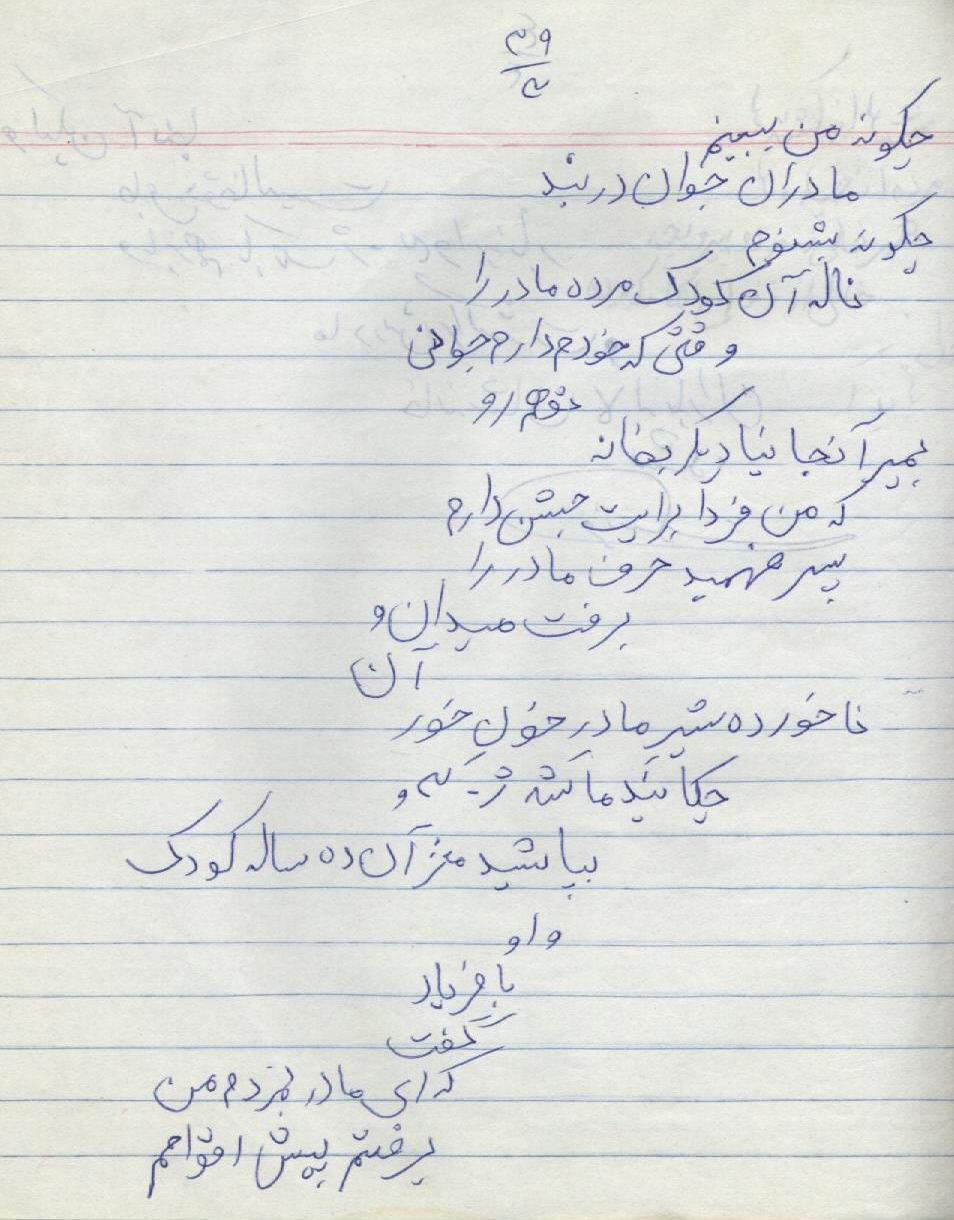 چگونه من ببینم
مادران جوان دربند
چگونه بشنوم
ناله آن کودک مرده مادر را
وقتی که خودم دارم جوانی
تو هم رو
بمیر آنجا نیا دیگر بخانه
که من فردا برایت جشن دارم
پسر فهمید حرف مادر را
برفت میدان و
آن
ناخورده شیر مادر خون خور
چکانید ماشه ژ-۳ و
بپاشید مغز آن ده ساله کودک
و او
با فریاد
گفت
که ای مادر نمردم من
برفتم پیش اقوامم